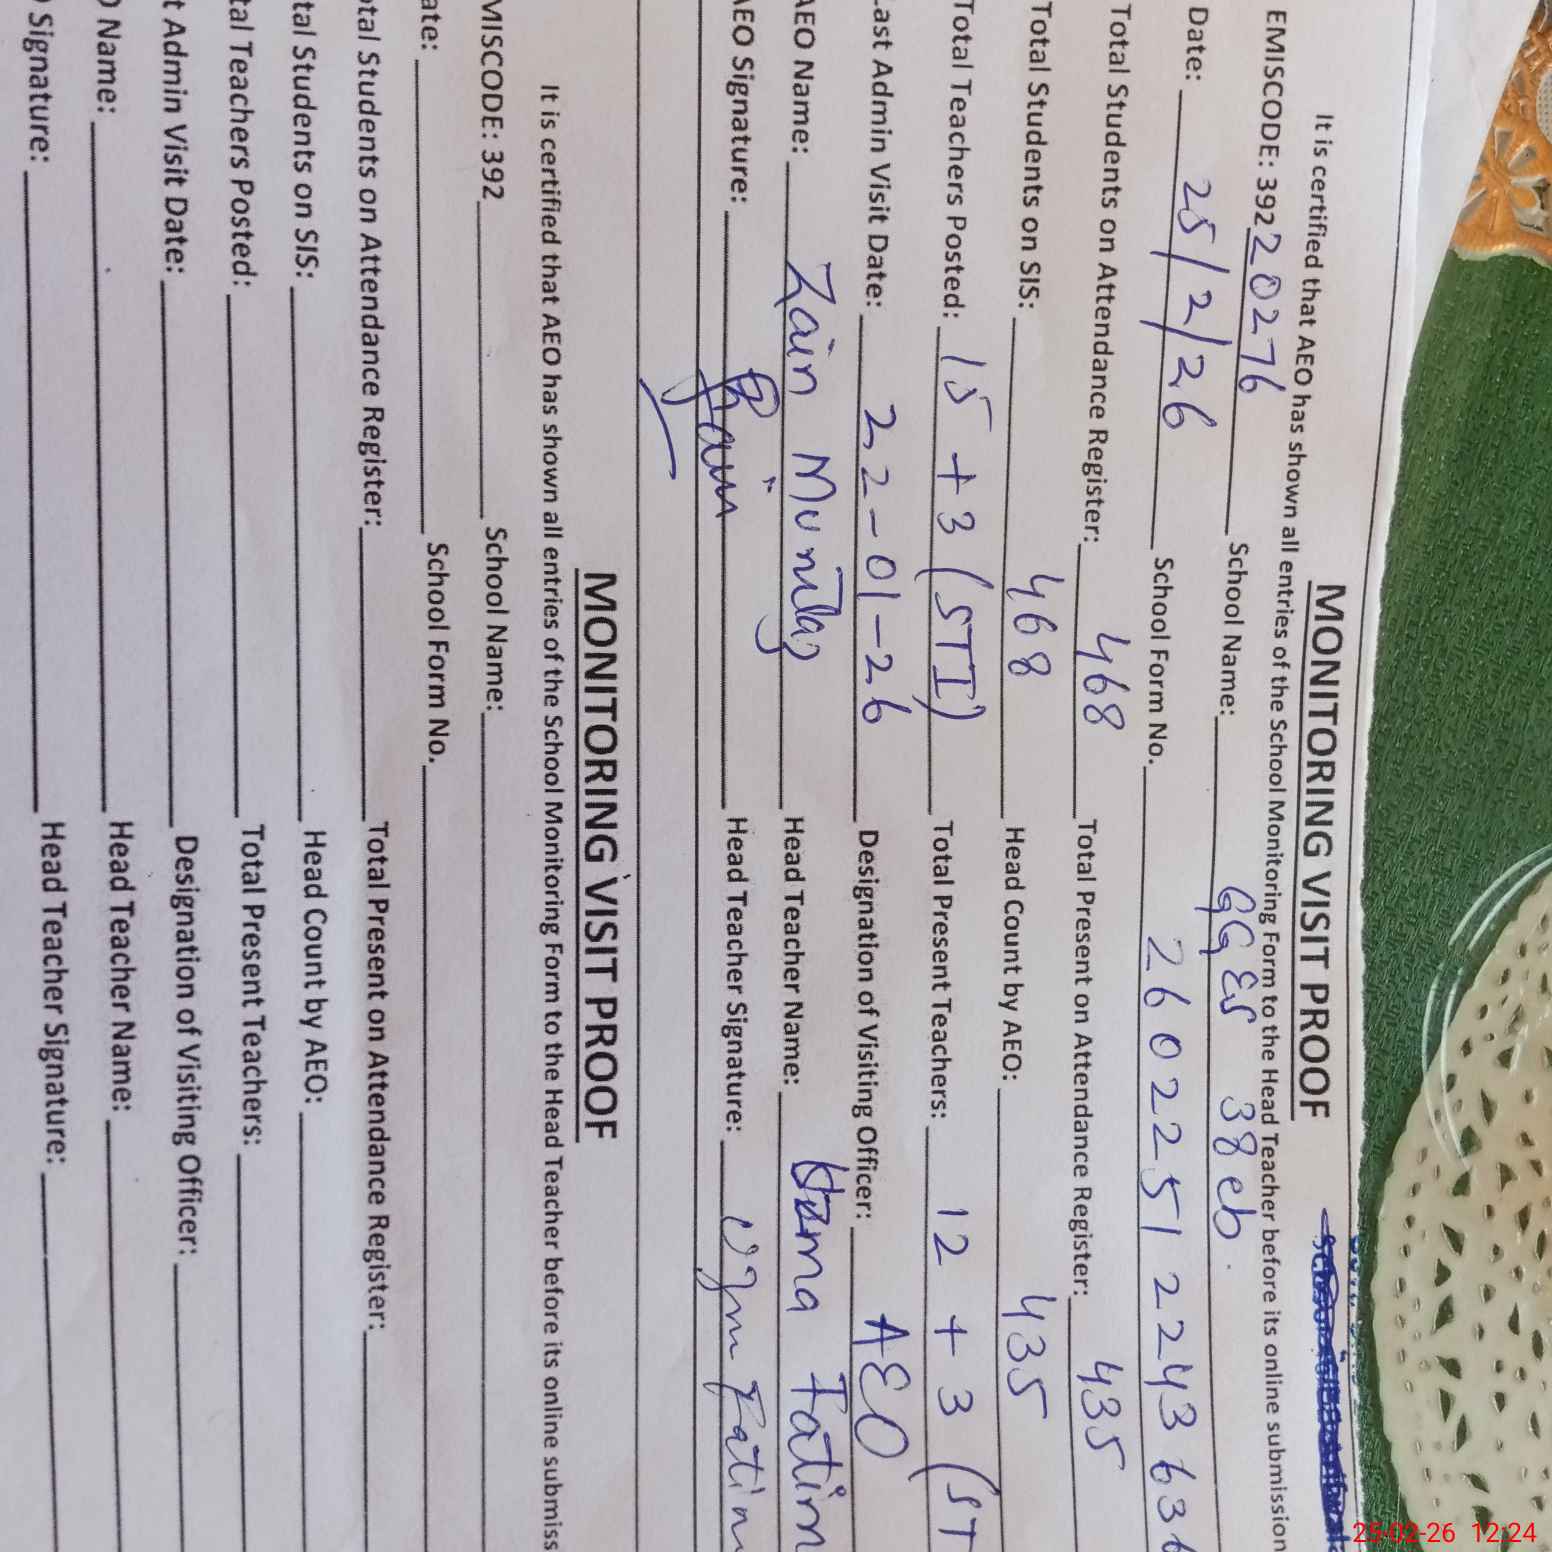 MONITORING VISIT PROOF
It is certified that AEO has shown all entries of the School Monitoring Form to the Head Teacher before its online submission
EMISCODE: 39220276 School Name: GGES 38eb.
Date: 25/2/26 School Form No. 26022512243636
Total Students on Attendance Register: 468 Total Present on Attendance Register: 435
Total Students on SIS: 468 Head Count by AEO: 435
Total Teachers Posted: 15 + 3 (STI) Total Present Teachers: 12 + 3 (ST
Last Admin Visit Date: 22-01-26 Designation of Visiting Officer: AEO
AEO Name: Zain Mumtaz Head Teacher Name: Uzma Fatim
AEO Signature: Zain Head Teacher Signature: Fatim
MONITORING VISIT PROOF
It is certified that AEO has shown all entries of the School Monitoring Form to the Head Teacher before its online submiss
MISCODE: 392 School Name:
ate: School Form No.
otal Students on Attendance Register: Total Present on Attendance Register:
tal Students on SIS: Head Count by AEO:
tal Teachers Posted: Total Present Teachers:
t Admin Visit Date: Designation of Visiting Officer:
O Name: Head Teacher Name:
O Signature: Head Teacher Signature:
25-02-26 12:24